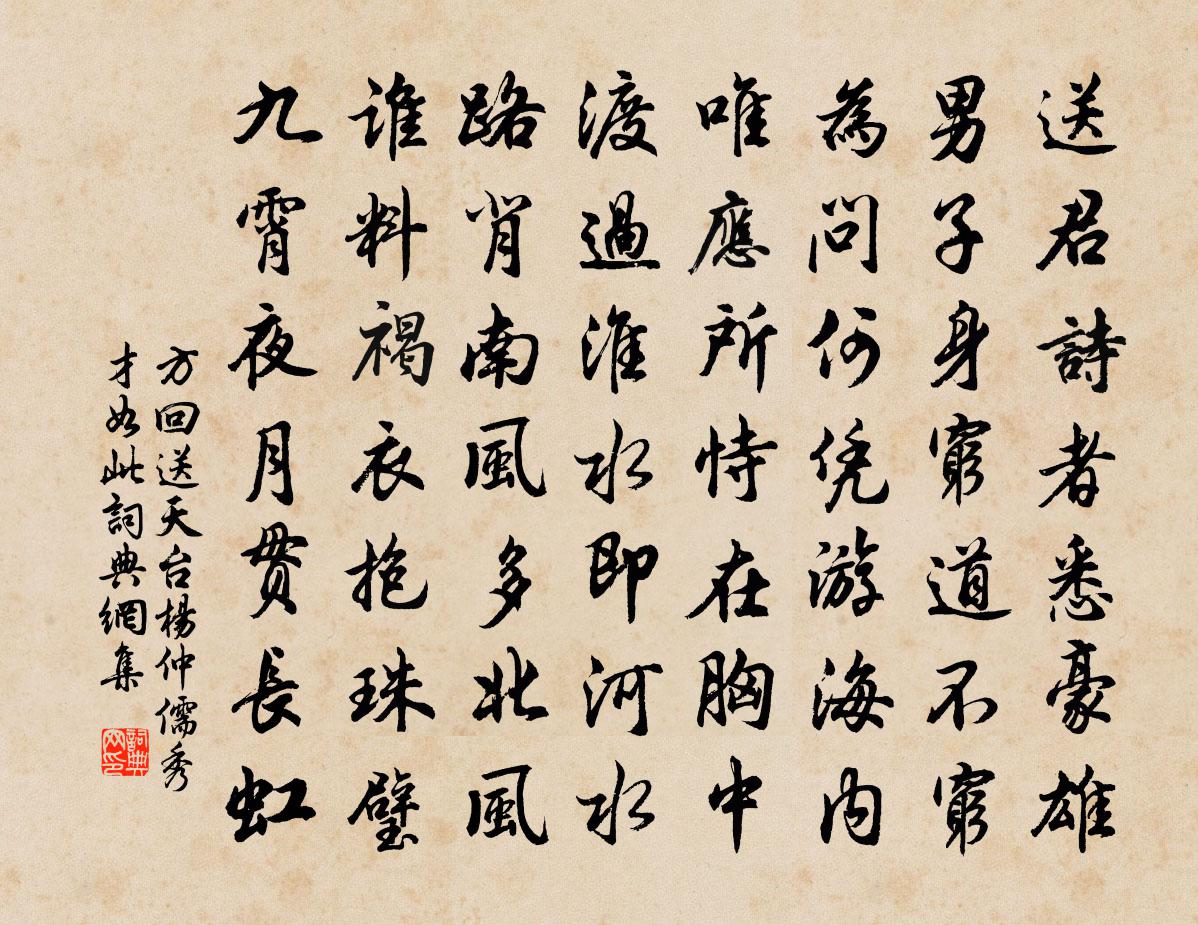 送君詩者悉豪雄
男子身窮道不窮
為問何凭游海內
唯應所恃在胸中
渡過淮水即河水
路背南風多北風
誰料褐衣抱珠璧
九霄夜月貫長虹
方回送天台楊仲儒秀
才如此詞典網集
詞典
网印